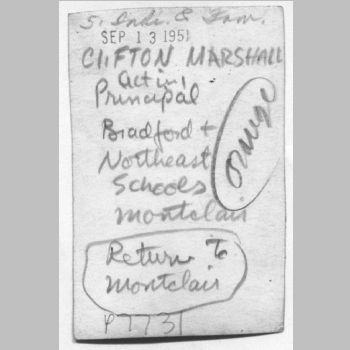 S. Indi. & Fam.
SEP 13 1951
CLIFTON MARSHALL
acting
Principal
Bradford +
Northeast
Schools
Montclair
orange
Return to
Montclair
P7731